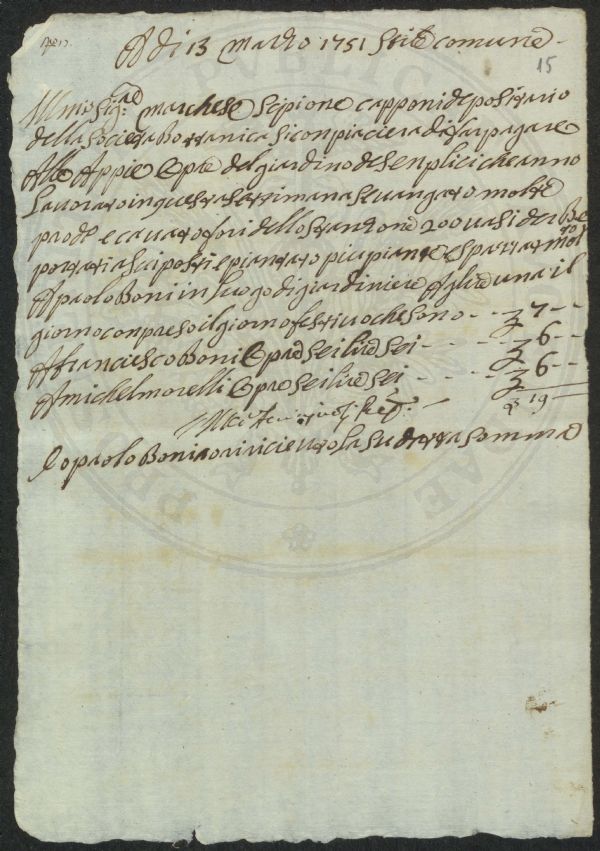 A di 13 Marzo 1751 Stile comune
15
Illmo Sigre Marchese Scipione Capponi depositario
della Societa Bottanica si conpiaciera di far pagare
Alle Appie Opre del giardino de Senplici che anno
lavorato in questa settimana e vangato molte
prode e cavato fori dello stanzone 200 vasi
piantato piu piante
A paolo Boni in luogo di giardiniere A lire una il
giorno conpreso il giorno festivo che sono - - 7 - -
A Franciesco Boni Opre sei lire sei - - - - 6 - -
A michel morelli Opre sei lire sei - - - - 6 - -
19
Io paolo Boni o ricievuto la su detta somma